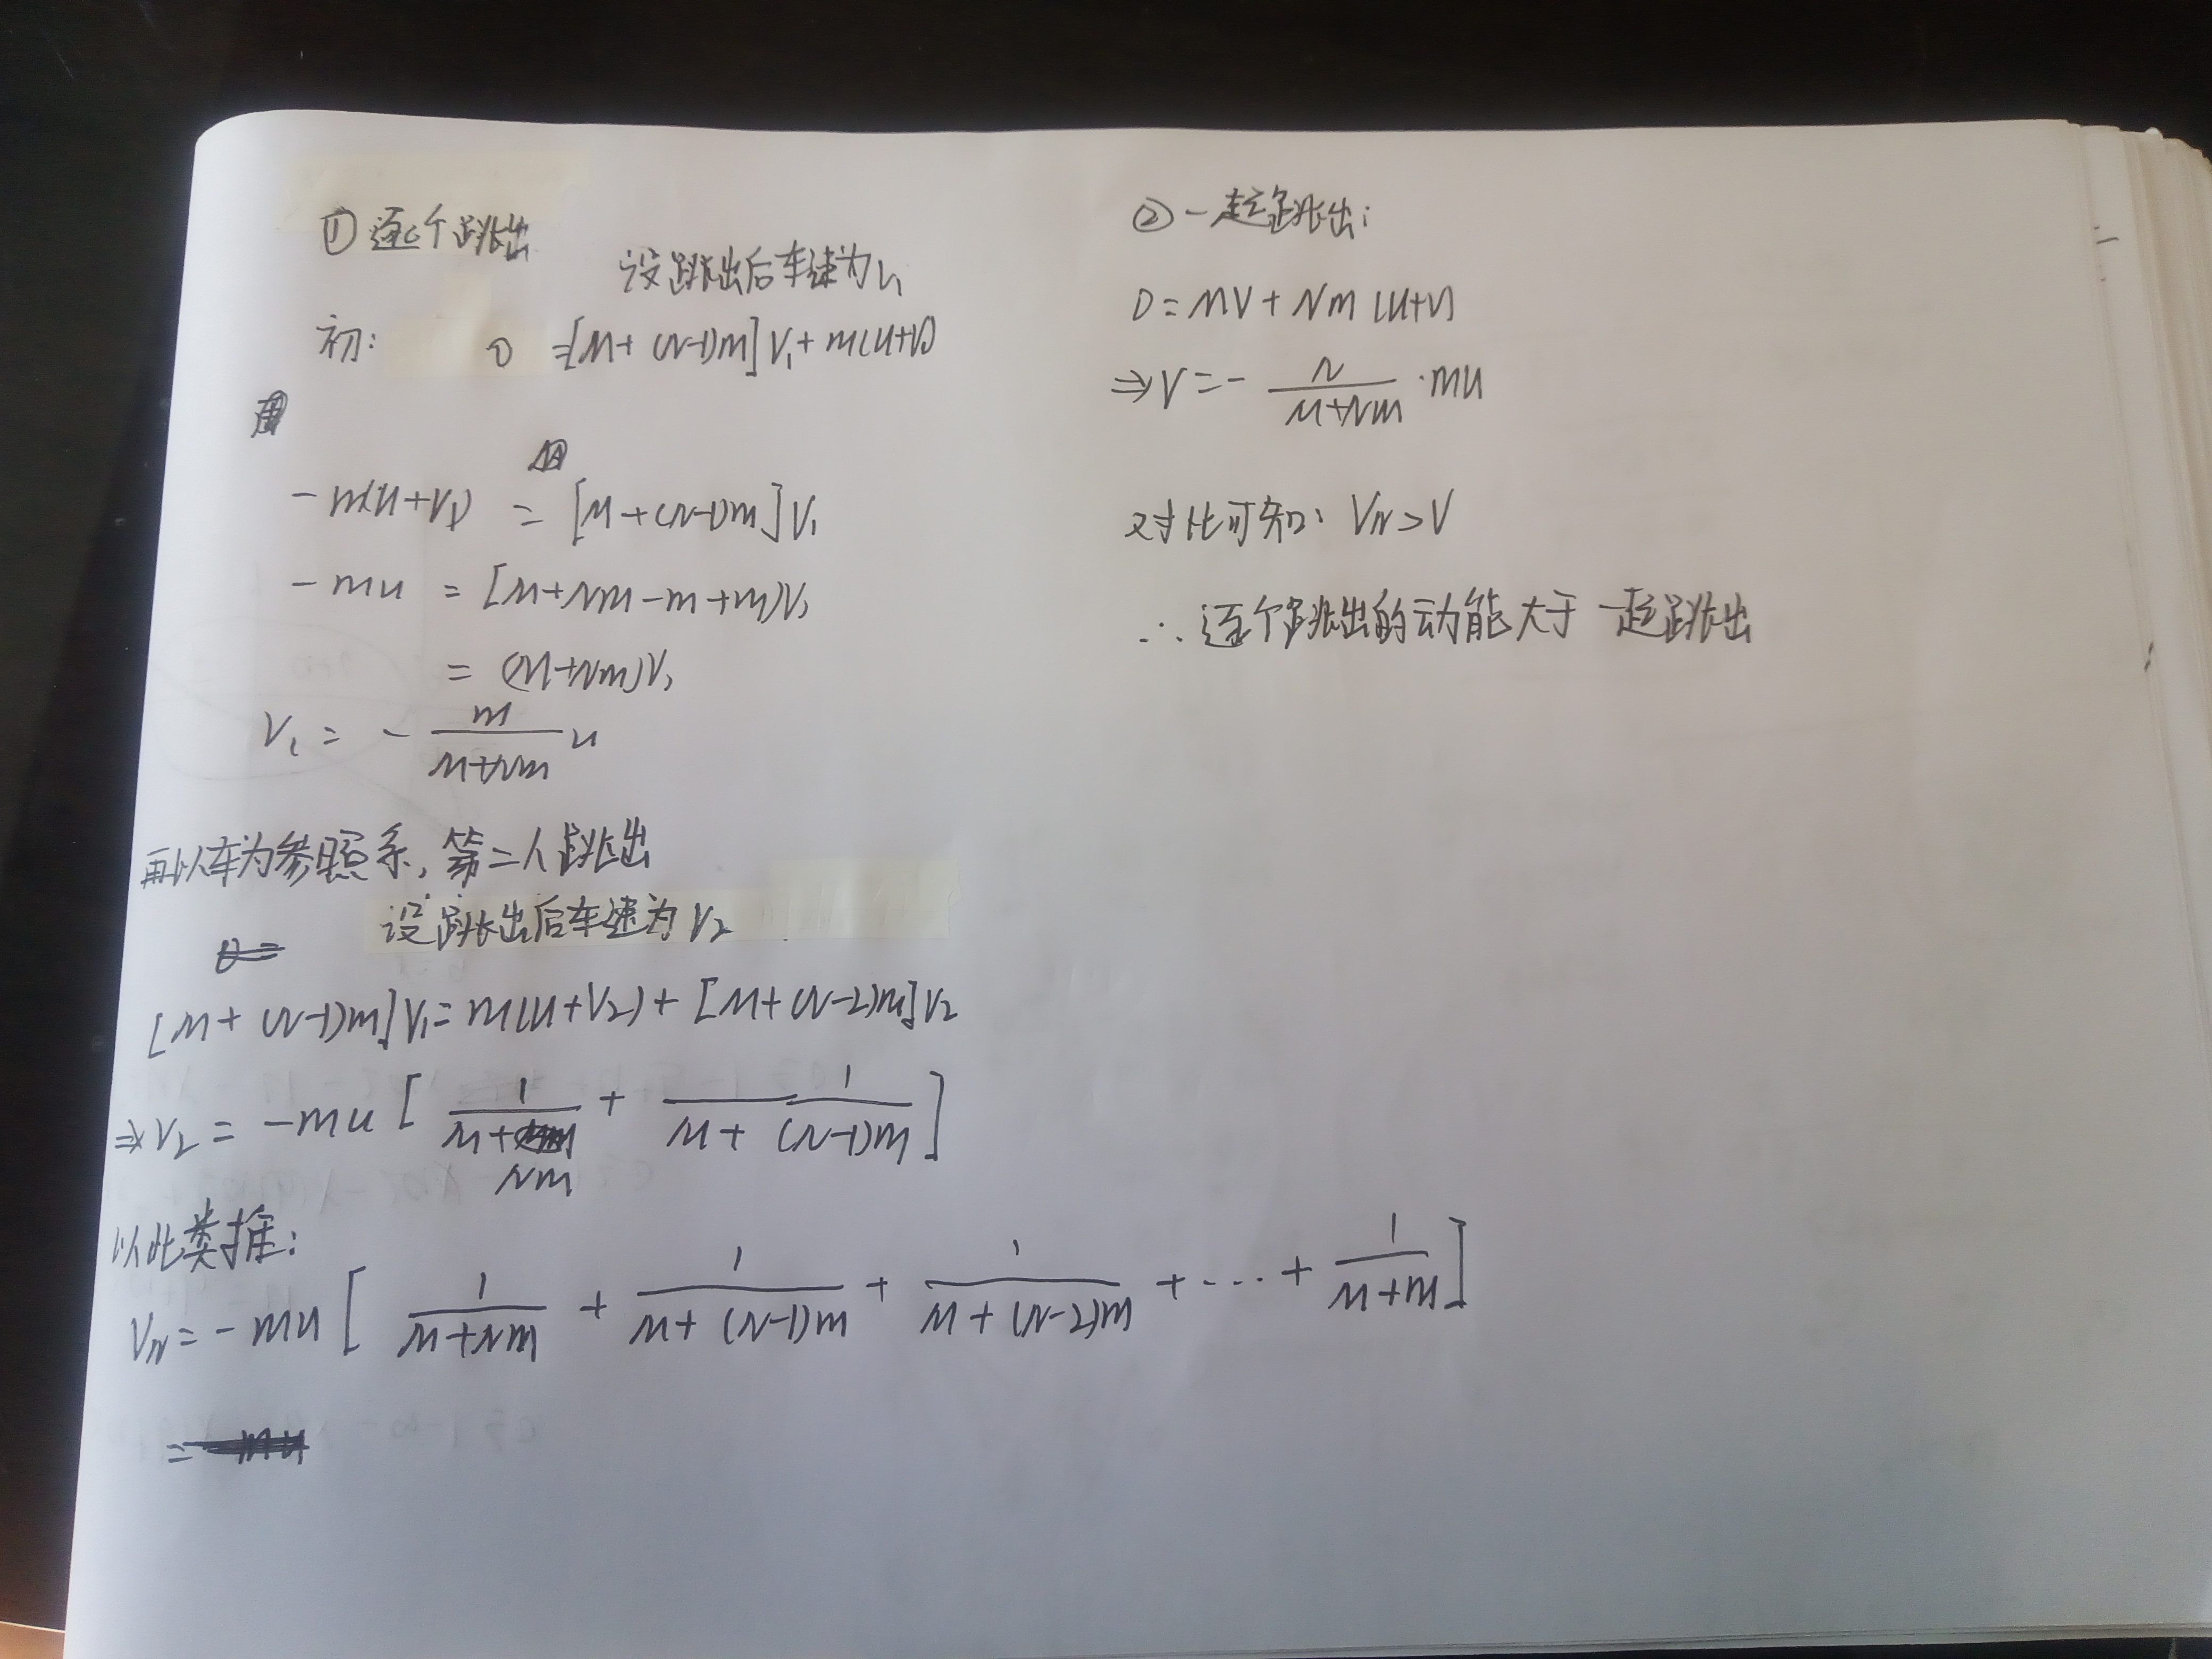 ① 逐个跳出
设跳出后车速为V₁
初: 0 =[M+(N-1)m]V₁+m(u+V₁)
-m(u+V₁) = [M+(N-1)m]V₁
-mu = [M+Nm-m+m)V₁
= (M+Nm)V₁
V₁ = - \frac{m}{M+Nm} u
再以车为参照系,第二人跳出
设跳出后车速为V₂
[M+(N-1)m]V₁=m(u+V₂)+[M+(N-2)m]V₂
⇒V₂ = -mu [ \frac{1}{M+Nm} + \frac{1}{M+(N-1)m} ]
以此类推:
V_N = -mu [ \frac{1}{M+Nm} + \frac{1}{M+(N-1)m} + \frac{1}{M+(N-2)m} +…+ \frac{1}{M+m} ]
=
② 一起跳出:
0=MV+Nm(u+V)
⇒V=- \frac{N}{M+Nm} ·mu
对比可知: V_N>V
∴逐个跳出的动能大于一起跳出